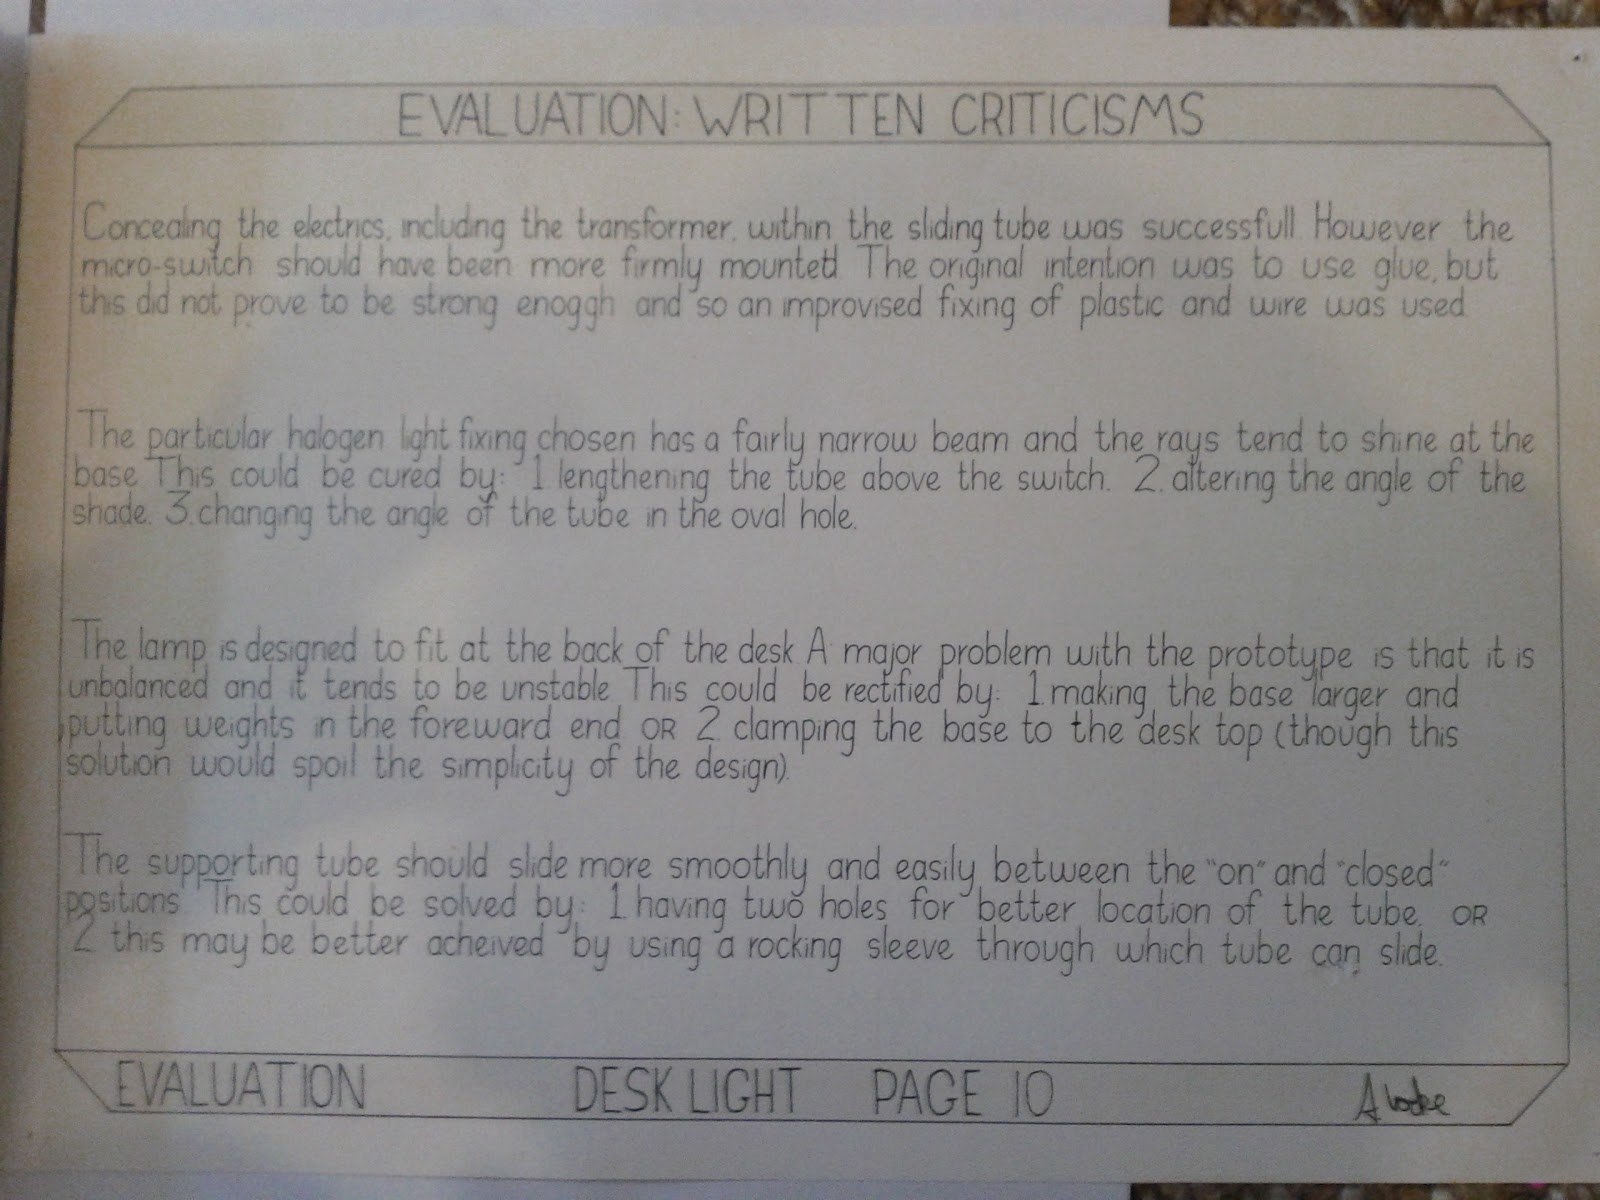 EVALUATION: WRITTEN CRITICISMS
Concealing the electrics, including the transformer, within the sliding tube was successfull. However the
micro-switch should have been more firmly mounted. The original intention was to use glue, but
this did not prove to be strong enoggh and so an improvised fixing of plastic and wire was used
The particular halogen light fixing chosen has a fairly narrow beam and the rays tend to shine at the
base. This could be cured by: 1. lengthening the tube above the switch. 2. altering the angle of the
shade. 3. changing the angle of the tube in the oval hole.
The lamp is designed to fit at the back of the desk. A major problem with the prototype is that it is
unbalanced and it tends to be unstable. This could be rectified by: 1. making the base larger and
putting weights in the foreward end OR 2. clamping the base to the desk top (though this
solution would spoil the simplicity of the design).
The supporting tube should slide more smoothly and easily between the "on" and "closed"
positions. This could be solved by: 1 having two holes for better location of the tube. OR
2 this may be better acheived by using a rocking sleeve through which tube can slide.
EVALUATION DESK LIGHT PAGE 10